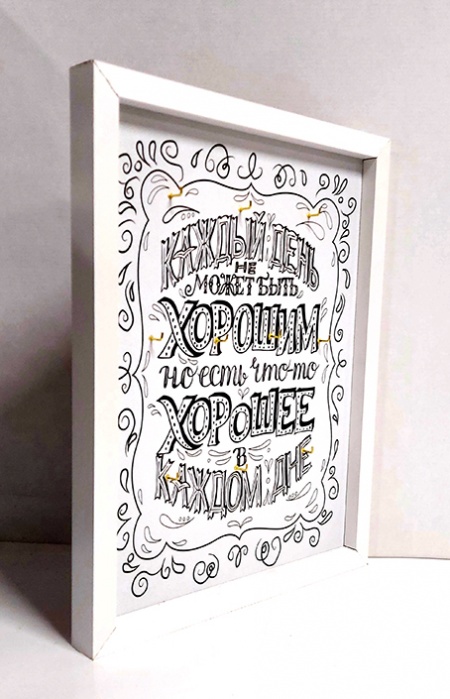 КАЖДЫЙ ДЕНЬ
НЕ
МОЖЕТ БЫТЬ
ХОРОШИМ
но есть что-то
ХОРОШЕЕ
В
КАЖДОМ ДНЕ